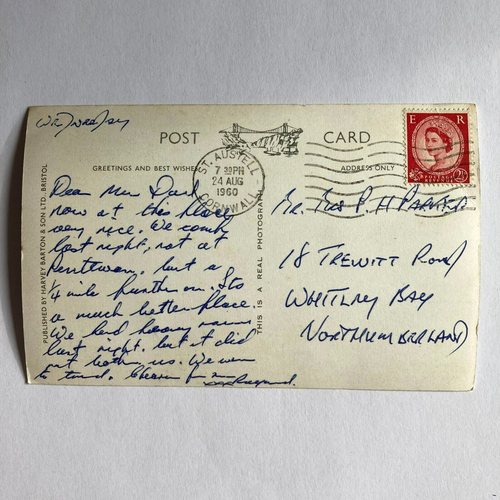 Wednesday
POST CARD
GREETINGS AND BEST WISHES
ADDRESS ONLY
ST. AUSTELL
7 30PM
24 AUG
1960
CORNWALL
E R
POSTAGE REVENUE
2½
PUBLISHED BY HARVEY BARTON & SON LTD. BRISTOL
THIS IS A REAL PHOTOGRAPH
Dear Mum Dad
now at this place
very nice. We camp
last night, not at
Pentewan, but a
¼ mile further on. Its
a much better place.
We had heavy
last night, but it did
not bother us. We
to. Cheerio for now
xxx Raymond.
Mr. P. H
18 TREWITT ROAD
WHITLEY BAY
NORTHUMBERLAND